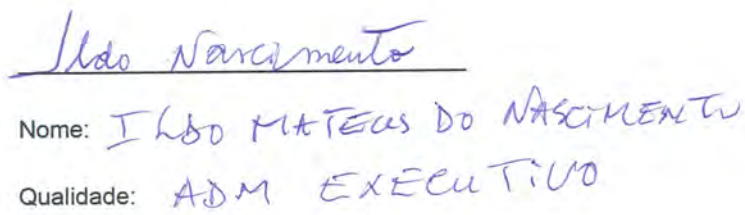 Ildo Nascimento
Nome: ILDO MATEUS DO NASCIMENTO
Qualidade: ADM EXECUTIVO